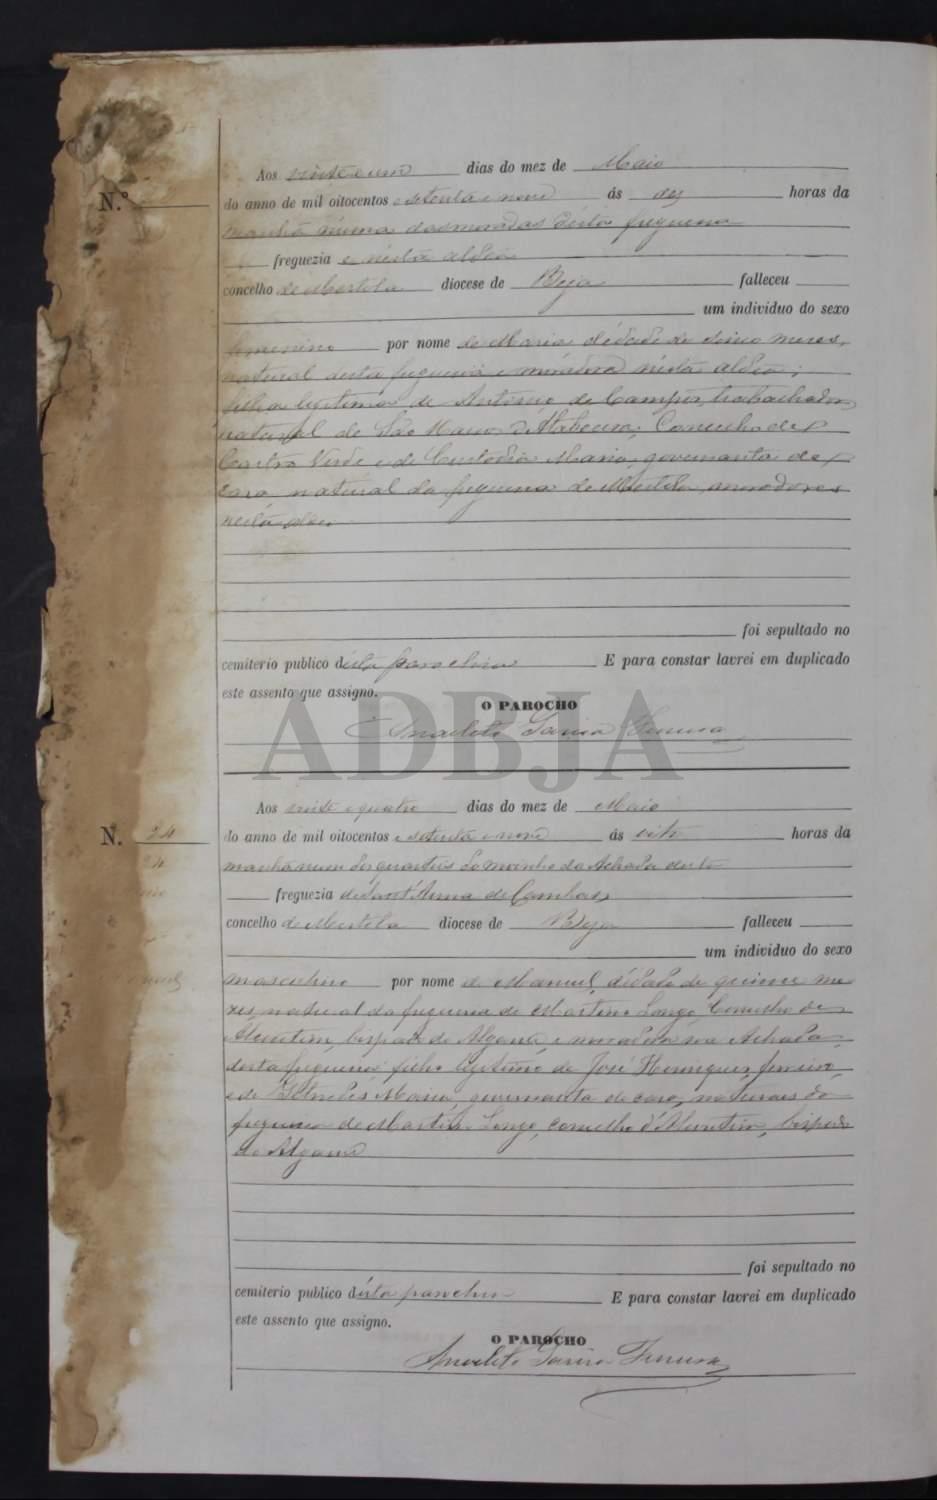 Aos vinte e um dias do mez de Maio
N.º do anno de mil oitocentos e setenta e nove ás dez horas da
manhã n'uma das moradas desta freguesia
freguezia e nésta aldeia
concelho de Mertola diocese de Beja falleceu
um individuo do sexo
femenino por nome de Maria d'edade de sinco meses,
natural desta freguesia e moradora nésta aldeia;
filha legitima de Antonio de Campos, trabalhador
natural de São Marcos d'Atabueira, Concelho de
Castro Verde e de Custodia Maria, governanta de
casa natural da freguesia de Mertola, moradores
nesta aldeia
foi sepultado no
cemiterio publico désta parochia E para constar lavrei em duplicado
este assento que assigno.
O PAROCHO
ADBJA
Anacleto
Aos vinte e quatro dias do mez de Maio
N. 24 do anno de mil oitocentos e setenta e nove ás oito horas da
24
manhã num dos quarteis do moinho da Achada desta
freguezia de Sant'Anna de Cambas
concelho de Mertola diocese de Beja falleceu
um individuo do sexo
Manuel
masculino por nome de Manuel, d'edade de quinze me
zes, natural da freguesia de Martim Longo, Concelho de
Alcoutim, bispado do Algarve, e morador na Achada,
desta freguesia, filho legitimo de José Henriques, ferreiro,
e de Maria governanta de casa, naturaes da
freguesia de Martim Longo, concelho d'Alcoutim, bispado
do Algarve
foi sepultado no
cemiterio publico désta parochia E para constar lavrei em duplicado
este assento que assigno.
O PAROCHO
Anacleto